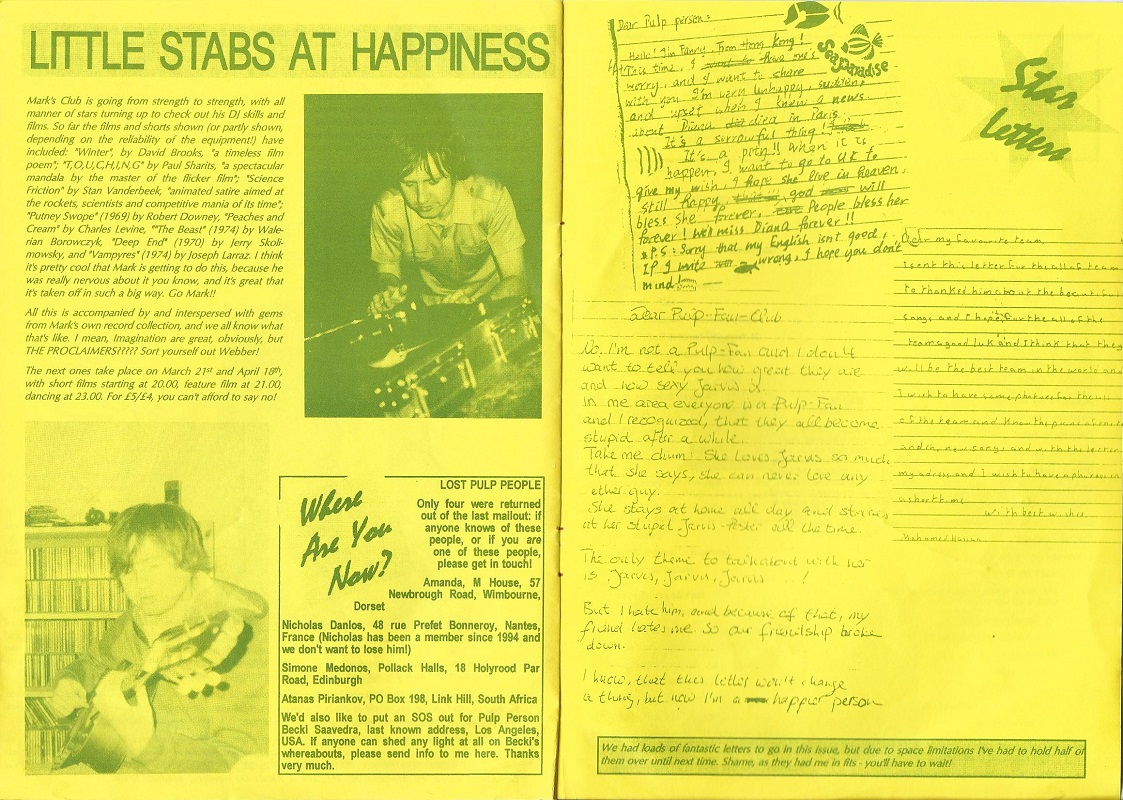 LITTLE STABS AT HAPPINESS
Mark's Club is going from strength to strength, with all
manner of stars turning up to check out his DJ skills and
films. So far the films and shorts shown (or partly shown,
depending on the reliability of the equipment!) have
included: "Winter", by David Brooks, "a timeless film
poem"; "T,O,U,C,H,I,N,G" by Paul Sharits, "a spectacular
mandala by the master of the flicker film"; "Science
Friction" by Stan Vanderbeek, "animated satire aimed at
the rockets, scientists and competitive mania of its time";
"Putney Swope" (1969) by Robert Downey, "Peaches and
Cream" by Charles Levine, ""The Beast" (1974) by Wale-
rian Borowczyk, "Deep End" (1970) by Jerry Skoli-
mowsky, and "Vampyres" (1974) by Joseph Larraz. I think
it's pretty cool that Mark is getting to do this, because he
was really nervous about it you know, and it's great that
it's taken off in such a big way. Go Mark!!
All this is accompanied by and interspersed with gems
from Mark's own record collection, and we all know what
that's like. I mean, Imagination are great, obviously, but
THE PROCLAIMERS????? Sort yourself out Webber!
The next ones take place on March 21st and April 18th,
with short films starting at 20.00, feature film at 21.00,
dancing at 23.00. For £5/£4, you can't afford to say no!
Where
Are You
Now?
LOST PULP PEOPLE
Only four were returned
out of the last mailout: if
anyone knows of these
people, or if you are
one of these people,
please get in touch!
Amanda, M House, 57
Newbrough Road, Wimbourne,
Dorset
Nicholas Danlos, 48 rue Prefet Bonneroy, Nantes,
France (Nicholas has been a member since 1994 and
we don't want to lose him!)
Simone Medonos, Pollack Halls, 18 Holyrood Par
Road, Edinburgh
Atanas Piriankov, PO Box 198, Link Hill, South Africa
We'd also like to put an SOS out for Pulp Person
Becki Saavedra, last known address, Los Angeles,
USA. If anyone can shed any light at all on Becki's
whereabouts, please send info to me here. Thanks
very much.
Dear Pulp person:
Hello! I'm Fanny, From Hong Kong!
This time, I have
worry, and I want to share
with you I'm very unhappy, sudden,
and upset when I knew a news
about Diana died in Paris.
It's a sorrowful thing!!
It's a pity!! When it is
happen, I want to go to UK to
give my wish, I hope she live in heaven,
still happy, god will
bless she forever, People bless her
forever! We'll miss Diana forever!!
P.S: Sorry that my English isn't good,
IF I write wrong, I hope you don't
mind!
Sea paradise
Star
Letters
Dear Pulp-Fan-Club
No, I'm not a Pulp-Fan and I don't
want to tell you how great they are
and how sexy Jarvis is.
In my area everyone is a Pulp-Fan
and I recognized, that they all become
stupid after a while.
Take me chum! She loves Jarvis so much
that she says, she can never love any
other guy.
She stays at home all day and stares
at her stupid Jarvis-Poster all the time.
The only theme to talk about with her
is Jarvis, Jarvis, Jarvis ...!
But I hate him, and because of that, my
friend hates me. So our friendship broke
down.
I know, that this letter won't change
a thing, but now I'm a happier person
Dear my favourite team,
I sent this letter for the all of team
to thanked him about the beautiful
songs and I hope for the all of the
team a good luk and I think that they
will be the best team in the world and
I wish to have some photoes for the all
of the team and
and the new songs and with the letter
my adress and I wish to have a photoes in
a short time
With best wishes,
Mohamed
We had loads of fantastic letters to go in this issue, but due to space limitations I've had to hold half of
them over until next time. Shame, as they had me in fits - you'll have to wait!